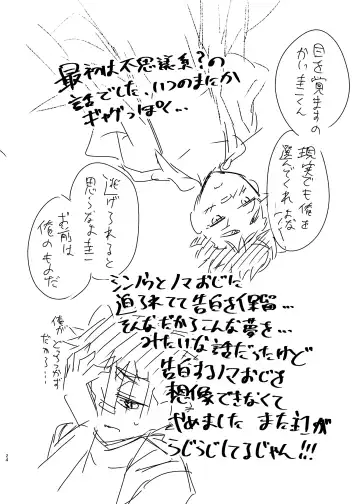 最初は不思議系?の
話でした、いつのまにか
ギャグっぽく…
目を覚ますの
かい圭くん
現実でも俺を
選んでくれよな!
逃げられると
思うなよ圭
お前は
俺のものだ
シンノウとノマおじに
迫られてて告白を保留…
そんなだからこんな夢を…
みたいな話だったけど
告白するノマおじを
想像できなくて
やめました また主が
うじうじしてるじゃん!!!
俺が
だから…